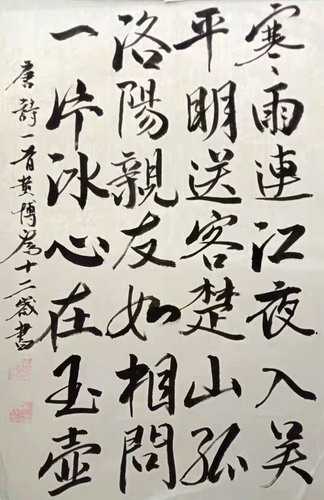 寒雨連江夜入吴
平明送客楚山孤
洛陽親友如相問
一片冰心在玉壺
唐詩一首黄博為十二歲書